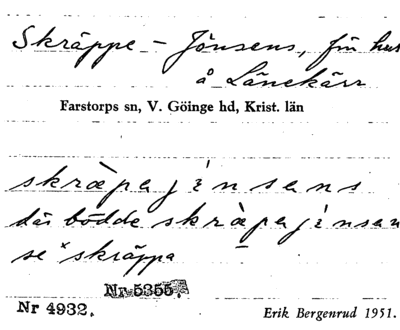 Skräppe - Jönsens, fin hus
å Länekärr
Farstorps sn, V. Göinge hd, Krist. län
skræpa jènsens
där bodde skræpa jènsen
se × skräppa
Nr 5355.
Nr 4932.
Erik Bergenrud 1951.